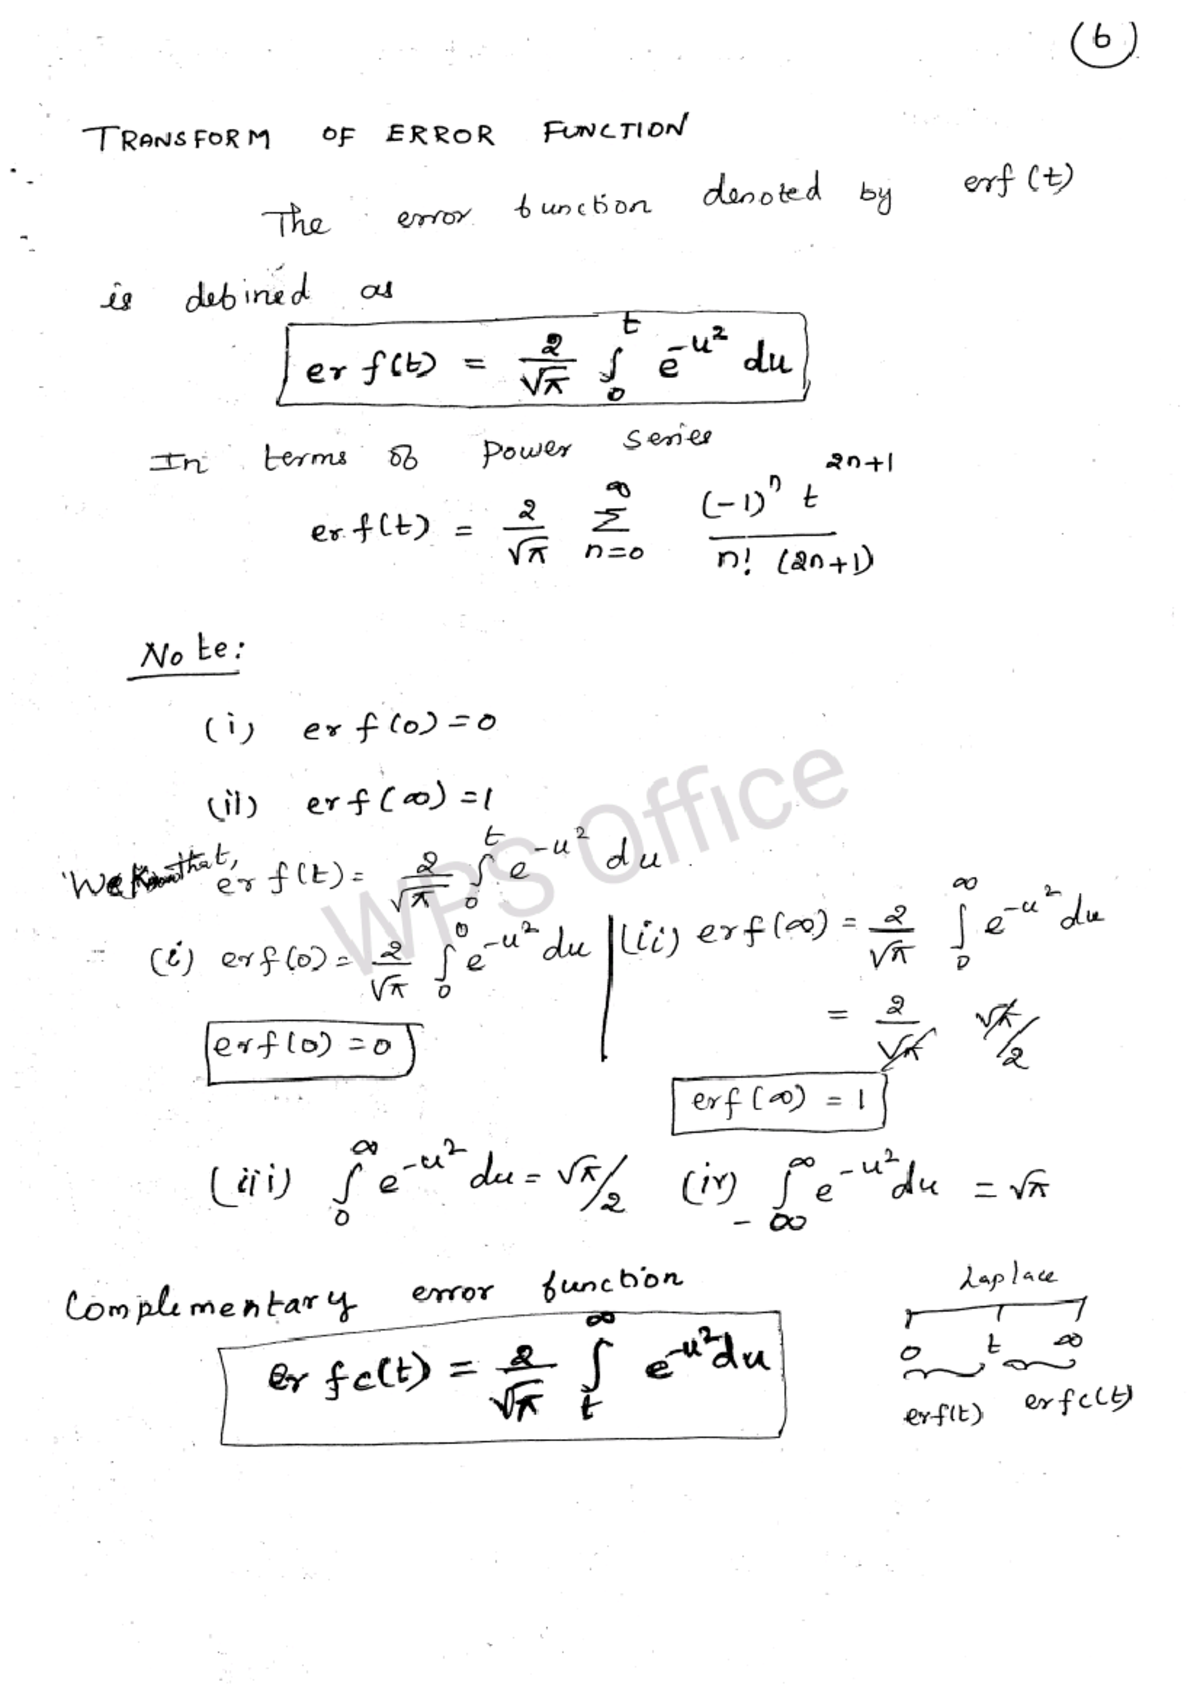 (6)
TRANSFORM OF ERROR FUNCTION
The error function denoted by erf(t)
is defined as
erf(t) = 2/√π ∫₀ᵗ e^{-u²} du
In terms of power series
erf(t) = 2/√π Σ_{n=0}^{∞} (-1)ⁿ t^{2n+1} / n! (2n+1)
Note:
(i) erf(0) = 0
(ii) erf(∞) = 1
We Know that, erf(t) = 2/√π ∫₀ᵗ e^{-u²} du.
(i) erf(0) = 2/√π ∫₀⁰ e^{-u²} du | (ii) erf(∞) = 2/√π ∫₀^∞ e^{-u²} du
= 2/√π √π/2
erf(0) = 0
erf(∞) = 1
(iii) ∫₀^∞ e^{-u²} du = √π/2 (iv) ∫_{-∞}^{∞} e^{-u²} du = √π
Complementary error function
erfc(t) = 2/√π ∫_t^∞ e^{-u²} du
Laplace
0 t ∞
erf(t) erfc(t)
WPS Office